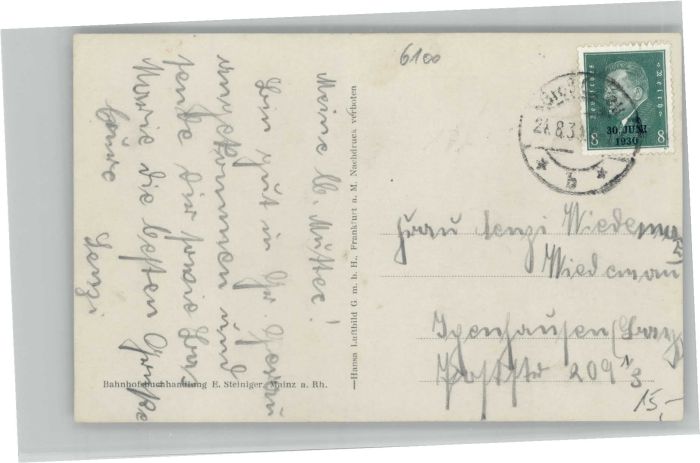 6100
Meine lb. Mutter!
Bin gut in Gr. Gerau
angekommen und
sende Dir sowie
Marie die besten Grüße
Eure
Lenzi
Hansa Luftbild G. m. b. H., Frankfurt a. M. Nachdruck verboten
Bahnhofsbuchhandlung E. Steiniger, Mainz a. Rh.
Deutsches Reich
8 30. JUNI 8
1930
b
Frau Lenzi Wiedeman
Wiedeman
Igenhausen
Poststr 209 1/3
15,-